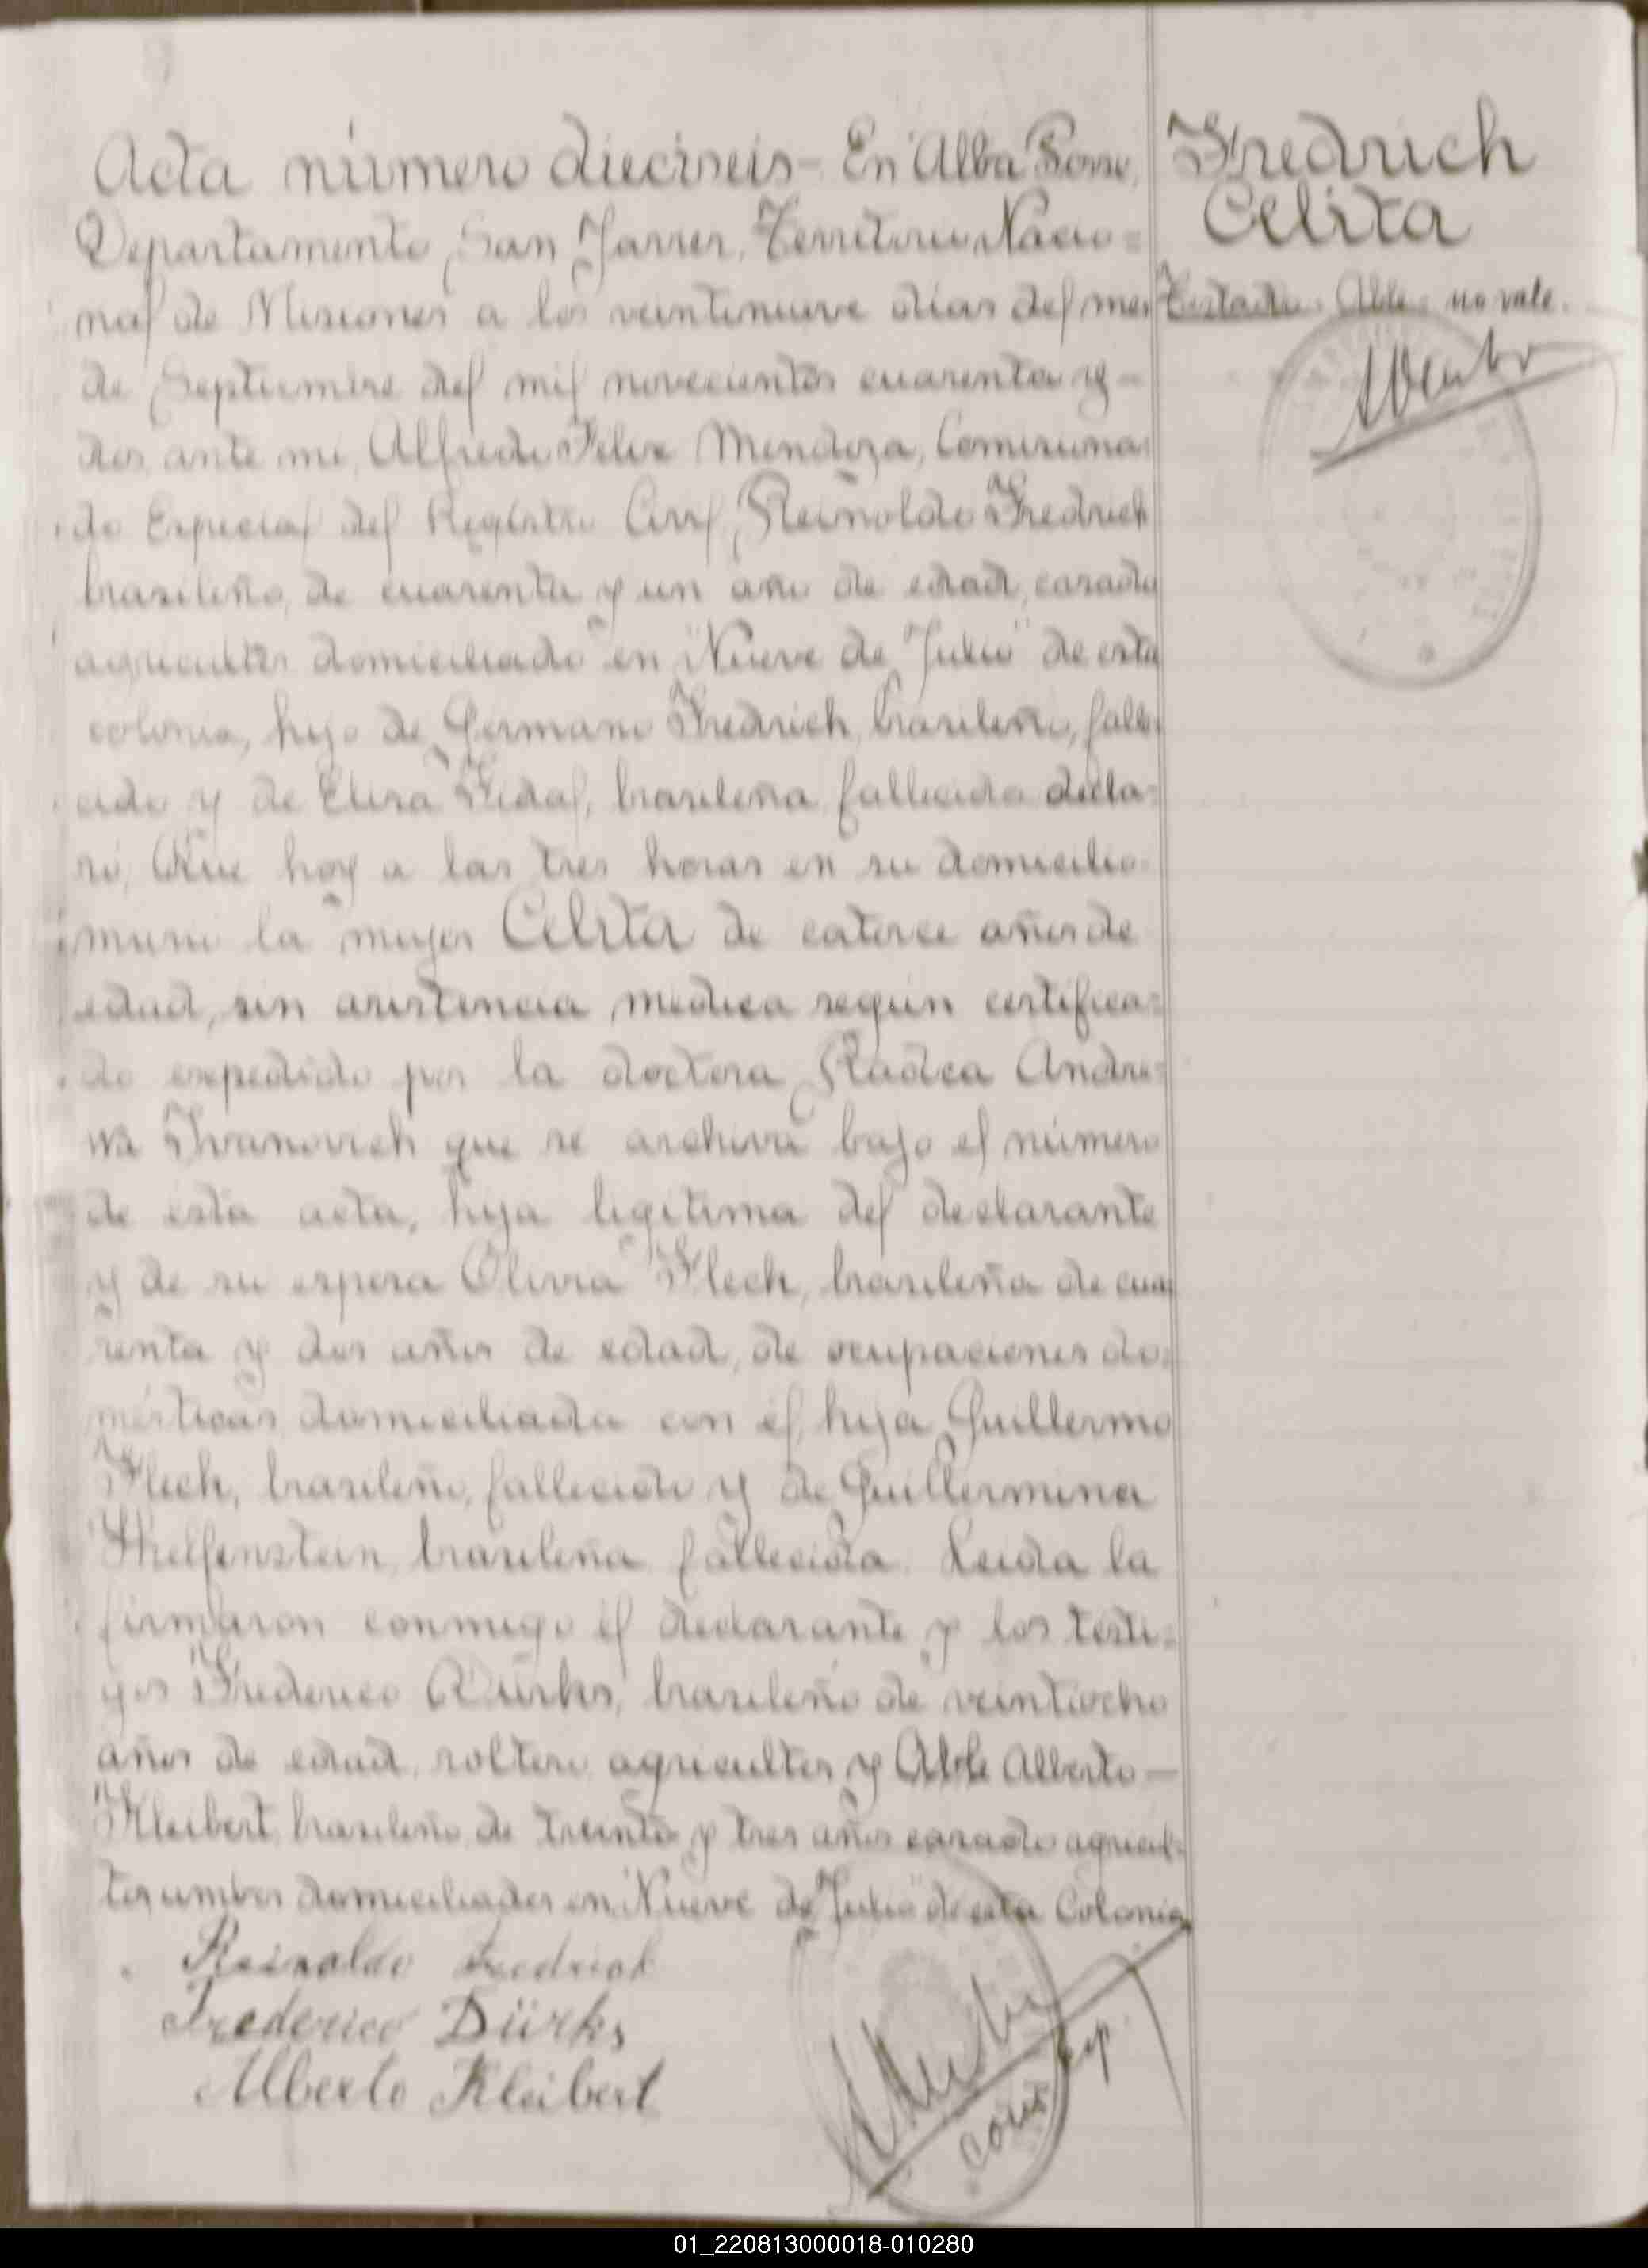 Acta número dieciseis - En "Alba Posse,
Departamento San Javier, Territorio Nacio=
nal de Misiones a los veintinueve dias del mes
de Septiembre del mil novecientos cuarenta y -
dos ante mi, Alfredo Felix Mendoza, Comisiona=
do Especial del Registro Civil, Reinoldo Fredrich
brasileño, de cuarenta y un año de edad, casado
agricultor domiciliado en "Nueve de Julio" de esta
colonia, hijo de Germano Fredrich, brasileño, falle
cido y de Elisa Fidal, brasileña fallecida decla=
ró, Que hoy a las tres horas en su domicilio
murio la mujer Celita de catorce años de
edad, sin asistencia medica según certifica=
do expedido por la doctora Radca Andre=
wa Ivanovich que se archiva bajo el número
de esta acta, hija legitima del declarante
y de su esposa Olivia Flech, brasileña de cua
renta y dos años de edad, de ocupaciones do=
mésticas domiciliada con el, hija Guillermo
Flech, brasileño, fallecido y de Guillermina
brasileña fallecida. Leida la
firmaron conmigo el declarante y los testi=
gos Frederico Dürks, brasileño de veintiocho
años de edad, soltero agricultor y Able Alberto -
Kleibert, brasileño de treinta y tres años casado agricul=
tor ambos domiciliados en "Nueve de Julio" de esta Colonia
Reinaldo Fredrich
Frederico Dürks
Alberto Kleibert
Com esp.
Fredrich
Celita
Testado: Able: no vale.
01_220813000018-010280